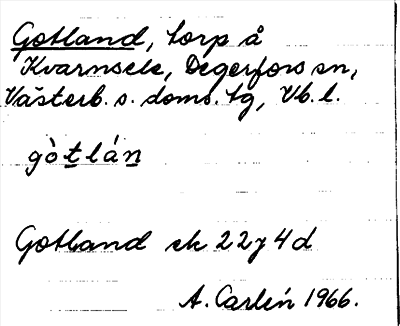 Gotland, torp å
Kvarnsele, Degerfors sn,
Västerb. s. doms. tg, Vb. l.
gòtlán
Gotland ek 22y4d
A. Carlén 1966.